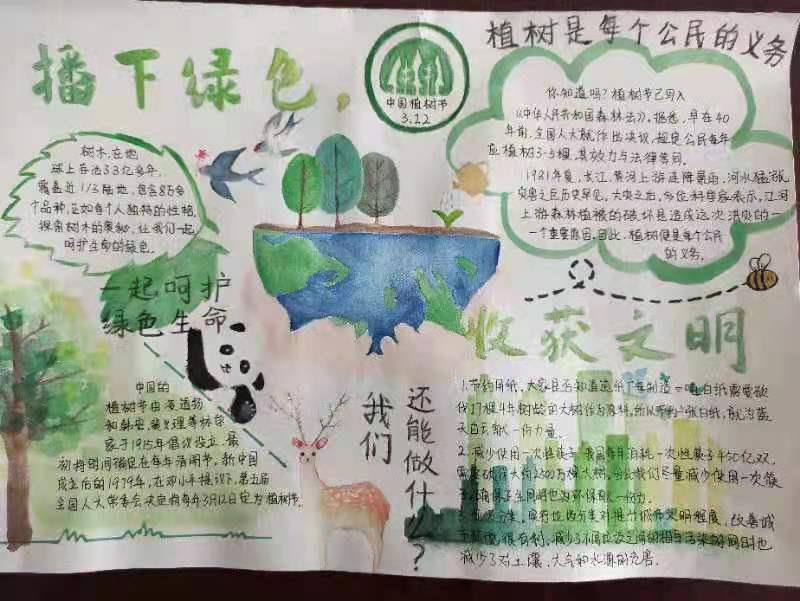 播下绿色，
中国植树节
3.12
植树是每个公民的义务
你知道吗？植树节已写入
《中华人民共和国森林法》，据悉，早在40
年前，全国人大就作出决议，规定公民每年
应植树3-5棵，其效力与法律等同。
1981年夏，长江、黄河上游连降暴雨，河水猛涨，
灾害之巨历史罕见，大灾之后，多位科学家表示，江河
上游森林植被的破坏是造成这次洪灾的一
一个重要原因，因此，植树便是每个公民
的义务。
树木，在地
球上存活3.3亿多年，
覆盖近1/3陆地，包含8万多
个品种，正如每个人独特的性格，
探索树木的奥秘，让我们一起
呵护生命的绿色。
一起呵护
绿色生命
收获文明
中国的
植树节由凌道扬
和韩安、裴义理等林学
家于1915年倡议设立，最
初将时间确定在每年清明节，新中国
成立后的1979年，在邓小平提议下，第五届
全国人大常委会决定将每年3月12日定为植树节。
我们
还能做什么？
1.节约用纸，大家是否知道造纸厂在制造一吨白纸需要砍
伐17棵4年树龄的大树作为原料，所以节约一张白纸，就为蓝
天白云献一份力量。
2.减少使用一次性筷子，我国每年消耗一次性筷子450亿双，
需要砍伐大约2500万棵大树，
减少使用一次筷
也为环保献一份力。
3.垃圾分类，
提升城市文明程度，改善城
减少了
同时也
减少了对土壤、大气和水源的危害。